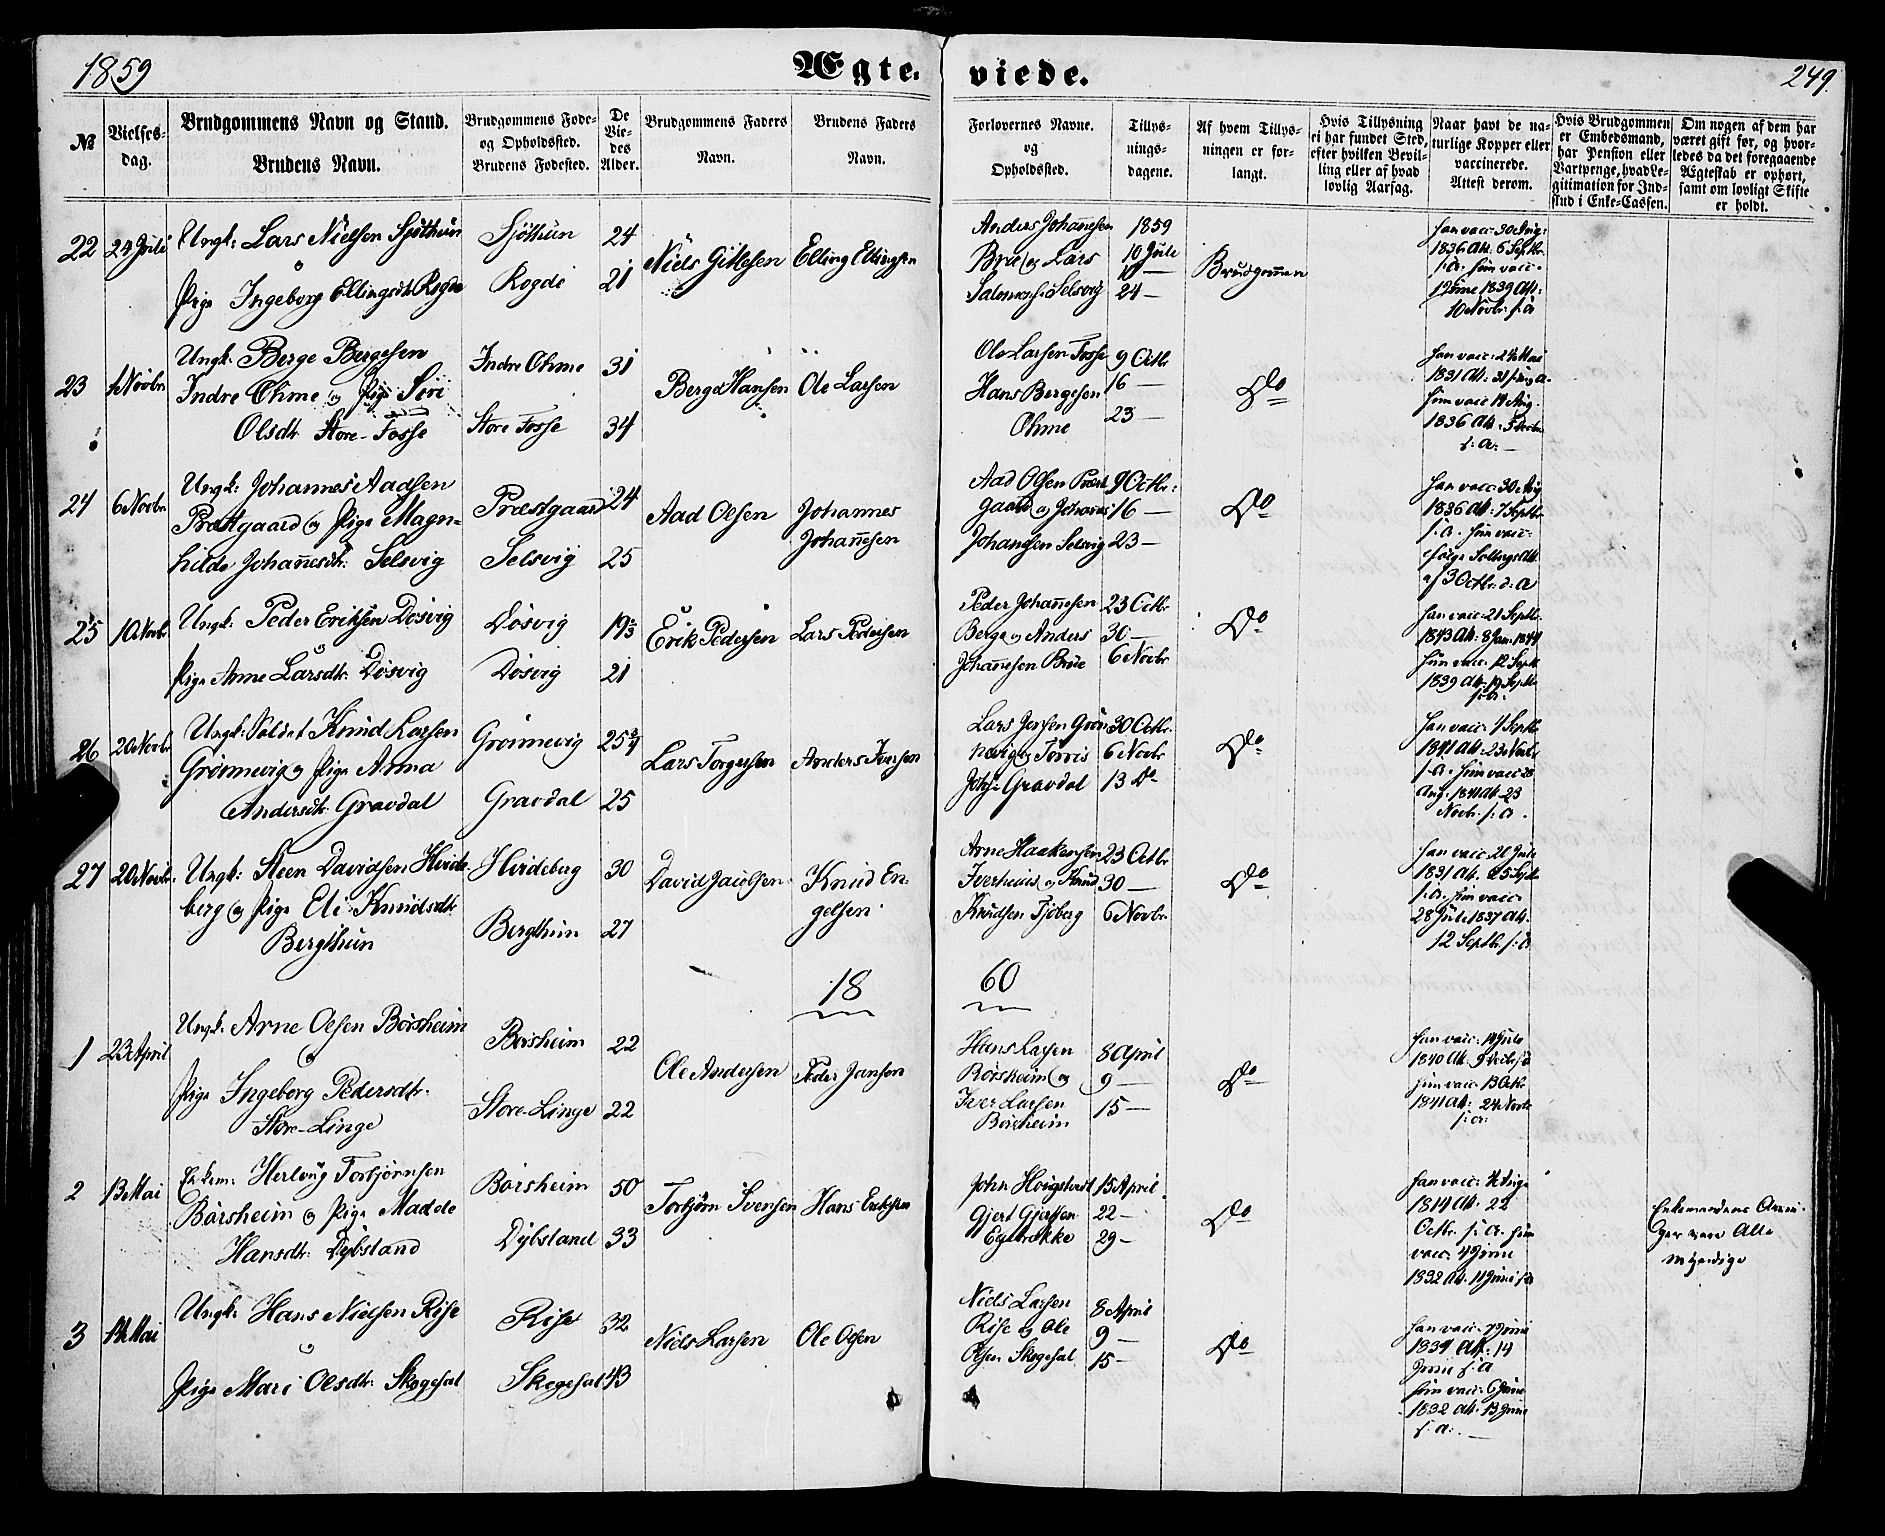 1859
Ægte-
viede.
249.
№
Vielses-
dag.
Brudgommens Navn og Stand.
Brudens Navn.
Brudgommens Føde-
og Opholdssted.
Brudens Fødested.
De
Vie-
des
Alder.
Brudgommens Faders
Navn.
Brudens Faders
Navn.
Forlovernes Navne.
og
Opholdssted.
Tillys-
nings-
dagene.
Af hvem Tillys-
ningen er for-
langt.
Hvis Tillysning
ei har fundet Sted,
efter hvilken Bevil-
ling eller af hvad
lovlig Aarsag.
Naar havt de na-
turlige Kopper eller
vaccinerede.
Attest derom.
Hvis Brudgommen
er Embedsmand,
har Pension eller
Vartpenge, hvad Le-
gitimation for Ind-
skud i Enke-Cassen.
Om nogen af dem har
været gift før, og hvor-
ledes da det foregaaende
Ægteskab er ophørt,
samt om lovligt Skifte
er holdt.
22
24 Juli
Ungk: Lars Nielsen Sjøthun
o
Pige Ingeborg Ellingsdtr Rogde
Sjøthun
Rogde
24
21
Niels Gitlesen
Elling Ellingsen
Anders Johannesen
Brue og Lars
Salomons: Selsvig
1859
10 Jule
17 —
24 —
Brudgommen
han vacc: 30 Aug:
1836 Att. 6 Septbr.
s. a. hun vacc.
1 June 1839 Att:
10 Novbr. s: a
23
1 Novbr
Ungk. Berge Bergesen
Indre Ohme og Pige Siri
Olsdtr Store-Fosse
Indre Ohme
Store Fosse
31
34
Berge Hansen
Ole Larsen
Ole Larsen Fosse
Hans Bergesen
Ohme
9 Octbr
16 —
23 —
Do
han vacc: 24 Mai
1831 Att: 31
hun vacc 14 Aug.
1836 Att.
s: a. —
24
6 Novbr
Ungk: Johannes Aadsen
Præstgaard og Pige Magn=
hilde Johannesdtr: Selsvig
Præstgaard
Selsvig
24
25
Aad Olsen
Johannes
Johannesen
Aad Olsen Præst
gaard og Johannes
Johannesen Selsvig
9 Octbr:
16 —
23 —
Do
han vacc: 30 Aug
1836 Att: 7 Septbr.
s. a. hun vacc:
ifølge Solbergs Att
af 3 Octbr. d: a
25
10 Novbr
Ungk: Peder Eriksen Døsvig
o
Pige Anne Larsdtr: Døsvig
Døsvig
Døsvig
19
21
Erik Pedersen
Lars Pedersen
Peder Johannesen
Berge og Anders
Johannesen Brue
23 Octbr
30 —
6 Novbr
Do
han vacc: 21 Septbr.
1843 Att: 8 Jan: 1844
hun vacc: 12 Septbr
1839 Att. 19 Septbr
s: a.
26
20 Novbr
Ungk: Soldat Knud Larsen
Grønnevig og Pige Anna
Andersdtr. Gravdal
Grønnevig
Gravdal
25 3/4
25
Lars Torgersen
Anders Iversen
Lars Jensen Grøn
nevig og Torris
Johs: Gravdal
30 Octbr.
6 Novbr
13 Do
Do
han vacc: 4 Septbr
1841 Att: 23 Novbr
s. a. hun vacc 28
Aug. 1841 Att 23
Novbr. s: a.
27
20 Novbr.
Ungk: Steen Davidsen Hvide
berg og Pige Eli Knudsdtr
Bergthun
Hvideberg
Bergthun
30
27
David Jacobsen
Knud En-
gelsen
Arne Haakensen
Iverhuus og Knud
Knudsen Tjoberg
23 Octbr
30 —
6 Novbr.
Do
han vacc. 20 Jule
1831 Att. 25 Septbr
s: a. hun vacc:
28 Jule 1837 Att.
12 Septbr. s: a
18
60
1
23 April
Ungk: Arne Olsen Børsheim
o
Pige Ingeborg Pedersdtr.
Store-Linge
Børsheim
Store-Linge
22
22
Ole Andersen
Peder Jansen
Hans Larsen
Børsheim og
Iver Larsen
Børsheim
8 April
9 —
15 —
Do
han vacc: 14 Jule
1840 Att.
hun vacc: 13 Octbr
1841 Att: 24 Novbr
s: a:
2
13 Mai
Enkem: Herlaug Torbjørnsen
Børsheim og Pige Madde
Hansdtr: Dybsland
Børsheim
Dybsland
50
33
Torbjørn Svensen
Hans Eriksen
John Hougstad
Gjert Gjertsen
Egebrække
15 April.
22 —
29 —
Do
han vacc:
1814 Att. 22
Octbr. s: a. hun
vacc: 4 June
1832 Att. 11 Juni s: a
Enkemandens Arvin-
ger vare Alle
myndige
3
14 Mai
Ungk: Hans Nielsen Rise
o
Pige Mari Olsdtr: Skogesal
Rise
Skogesal
32
43
Niels Larsen
Ole Olsen
Niels Larsen
Rise og Ole
Olsen Skogesal
8 April
9 —
15 —
Do
han vacc: 7 June
1834 Att: 14
June s: a
hun vacc: 6 June
1832 Att. 13 June
s: a: —